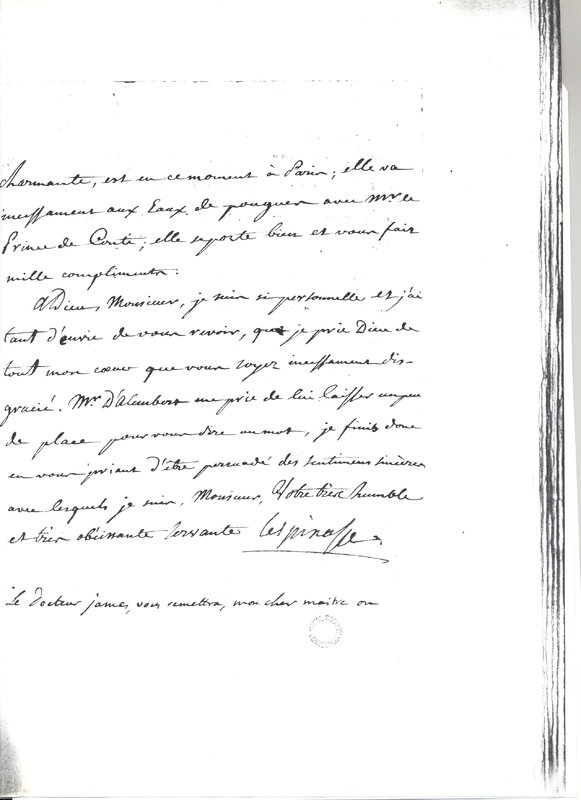 charmante, est en ce moment à Paris; elle va
incessament aux Eaux de pougues avec Mr. le
Prince de Conti; elle se porte bien et vous fait
mille complimens.
Adieu, Monsieur, je suis si personnelle et j'ai
tant d'envie de vous revoir, que je prie Dieu de
tout mon coeur que vous soyez incessament dis-
gracié. Mr. D'Alembert me prie de lui laisser un peu
de place pour vous dire un mot, je finis donc
en vous priant d'être persuadé des sentimens sincères
avec lesquels je suis, Monsieur, Votre très humble
et très obéissante servante Lespinasse.
Le docteur james, vous remettra, mon cher maitre ou